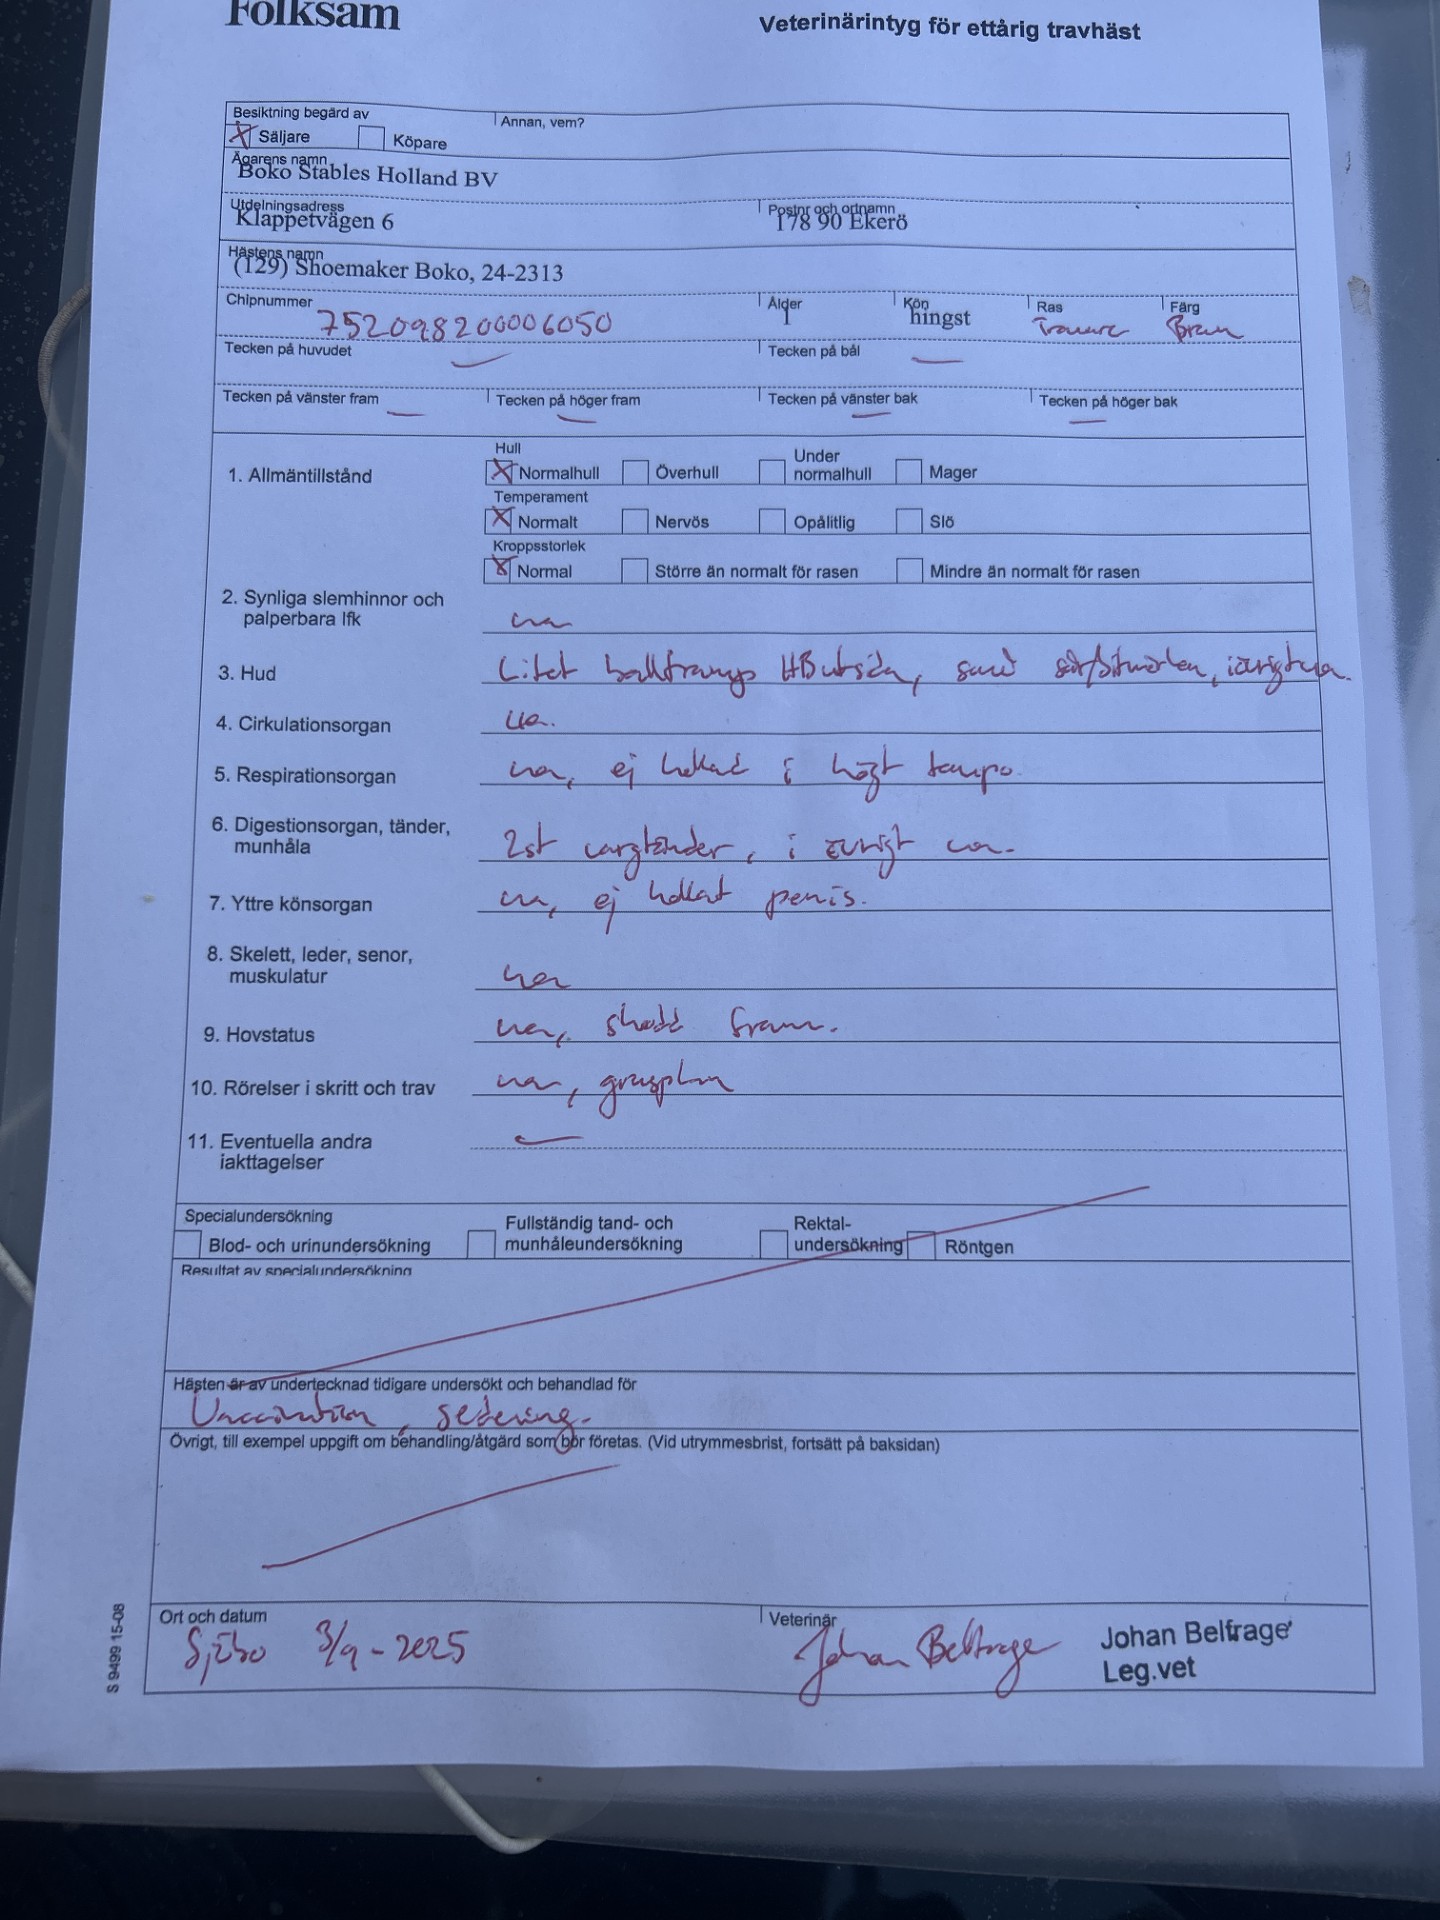 Folksam
Veterinärintyg för ettårig travhäst
Besiktning begärd av
Annan, vem?
Säljare Köpare
Ägarens namn
Boko Stables Holland BV
Utdelningsadress Postnr och ortnamn
Klappetvägen 6 178 90 Ekerö
Hästens namn
(129) Shoemaker Boko, 24-2313
Chipnummer Ålder Kön Ras Färg
752098200006050 1 hingst Travare Brun
Tecken på huvudet Tecken på bål
Tecken på vänster fram Tecken på höger fram Tecken på vänster bak Tecken på höger bak
1. Allmäntillstånd
Hull
Normalhull Överhull Under normalhull Mager
Temperament
Normalt Nervös Opålitlig Slö
Kroppsstorlek
Normal Större än normalt för rasen Mindre än normalt för rasen
2. Synliga slemhinnor och
palperbara lfk ua
3. Hud Litet balltramp HB utsida, samt, i övrigt ua.
4. Cirkulationsorgan ua.
5. Respirationsorgan ua, ej kollad i högt tempo.
6. Digestionsorgan, tänder,
munhåla 2st vargtänder, i övrigt ua.
7. Yttre könsorgan ua, ej kollat penis.
8. Skelett, leder, senor,
muskulatur ua
9. Hovstatus ua, skodd fram.
10. Rörelser i skritt och trav ua, grusplan
11. Eventuella andra
iakttagelser
Specialundersökning
Blod- och urinundersökning Fullständig tand- och munhåleundersökning Rektal-undersökning Röntgen
Resultat av specialundersökning
Hästen är av undertecknad tidigare undersökt och behandlad för
Vaccination, sedering.
Övrigt, till exempel uppgift om behandling/åtgärd som bör företas. (Vid utrymmesbrist, fortsätt på baksidan)
Ort och datum Veterinär
Sjöbo 3/9-2025 Johan Belfrage
Johan Belfrage
Leg.vet
S 9499 15-08